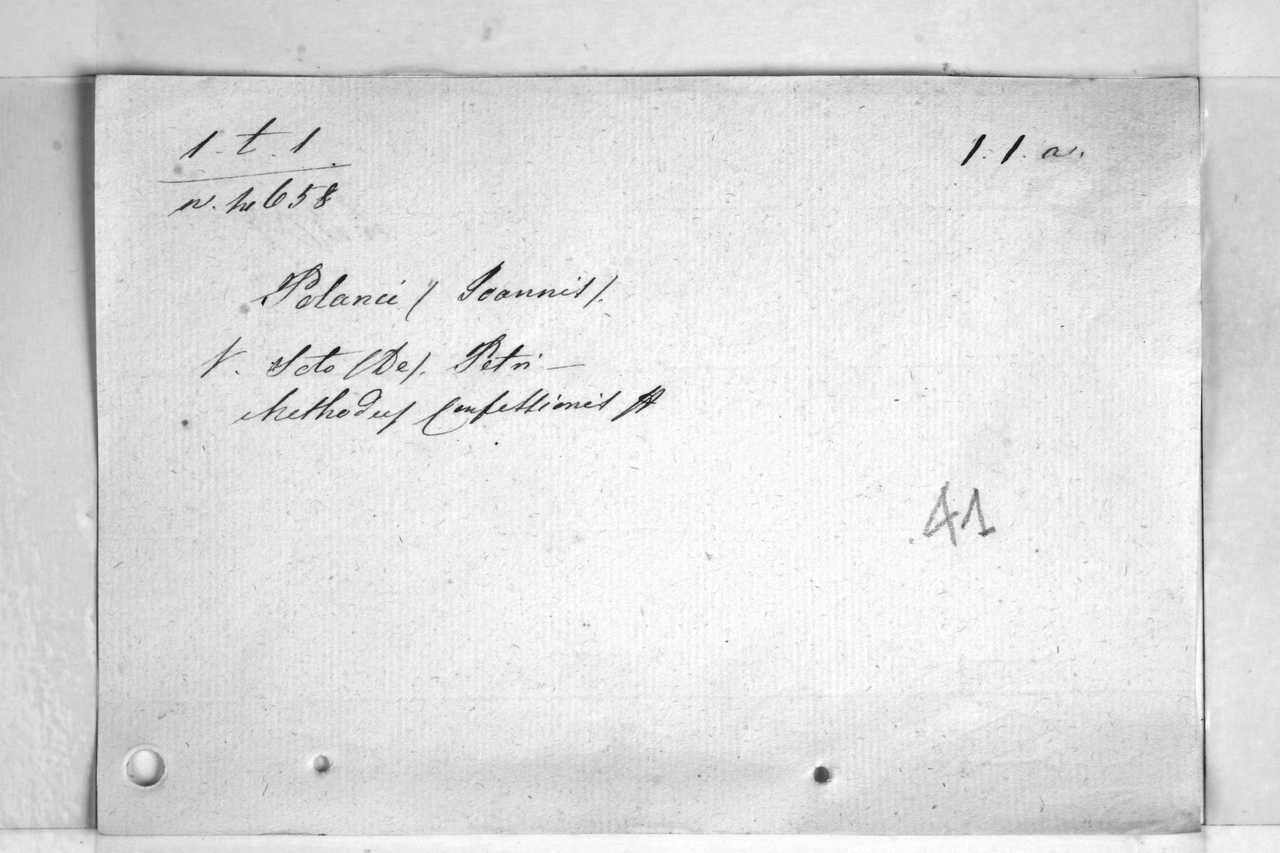 1. t. 1.
1. 1. a.
n. 14658
Polanci (Joannis).
V. Soto (De). Petri —
Methodus Confessionis
41